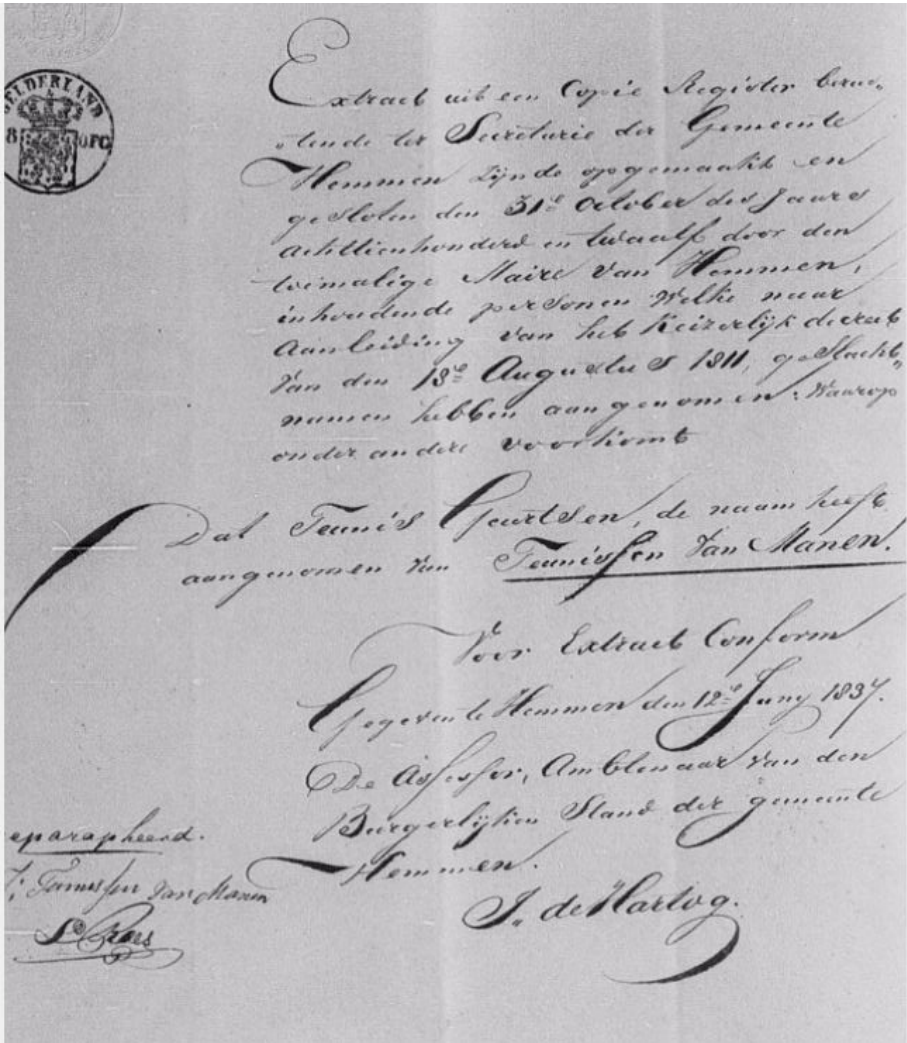 GELDERLAND
8 OPC
Extract uit een Copie Register berus„
„tende ter Secretarie der Gemeente
Hemmen zijnde opgemaakt en
gesloten den 31e October des Jaars
achttienhonderd en twaalf door den
toenmalige Maire van Hemmen,
inhoudende personen welke naar
Aanleiding van het Keizerlijk decreet
Van den 18e Augustus 1811, geslacht„
namen hebben aangenomen: Waarop
onder andere voorkomt
Dat Teunis Geurtsen, de naam heeft
aangenomen van Teunissen Van Manen.
Voor Extract Conform
Gegeven te Hemmen den 12e Juny 1837.
De Assessor, Ambtenaar van den
Burgerlijken Stand der gemeente
Hemmen.
J. de Hartog.
eparapheerd.
Teunissen van Manen